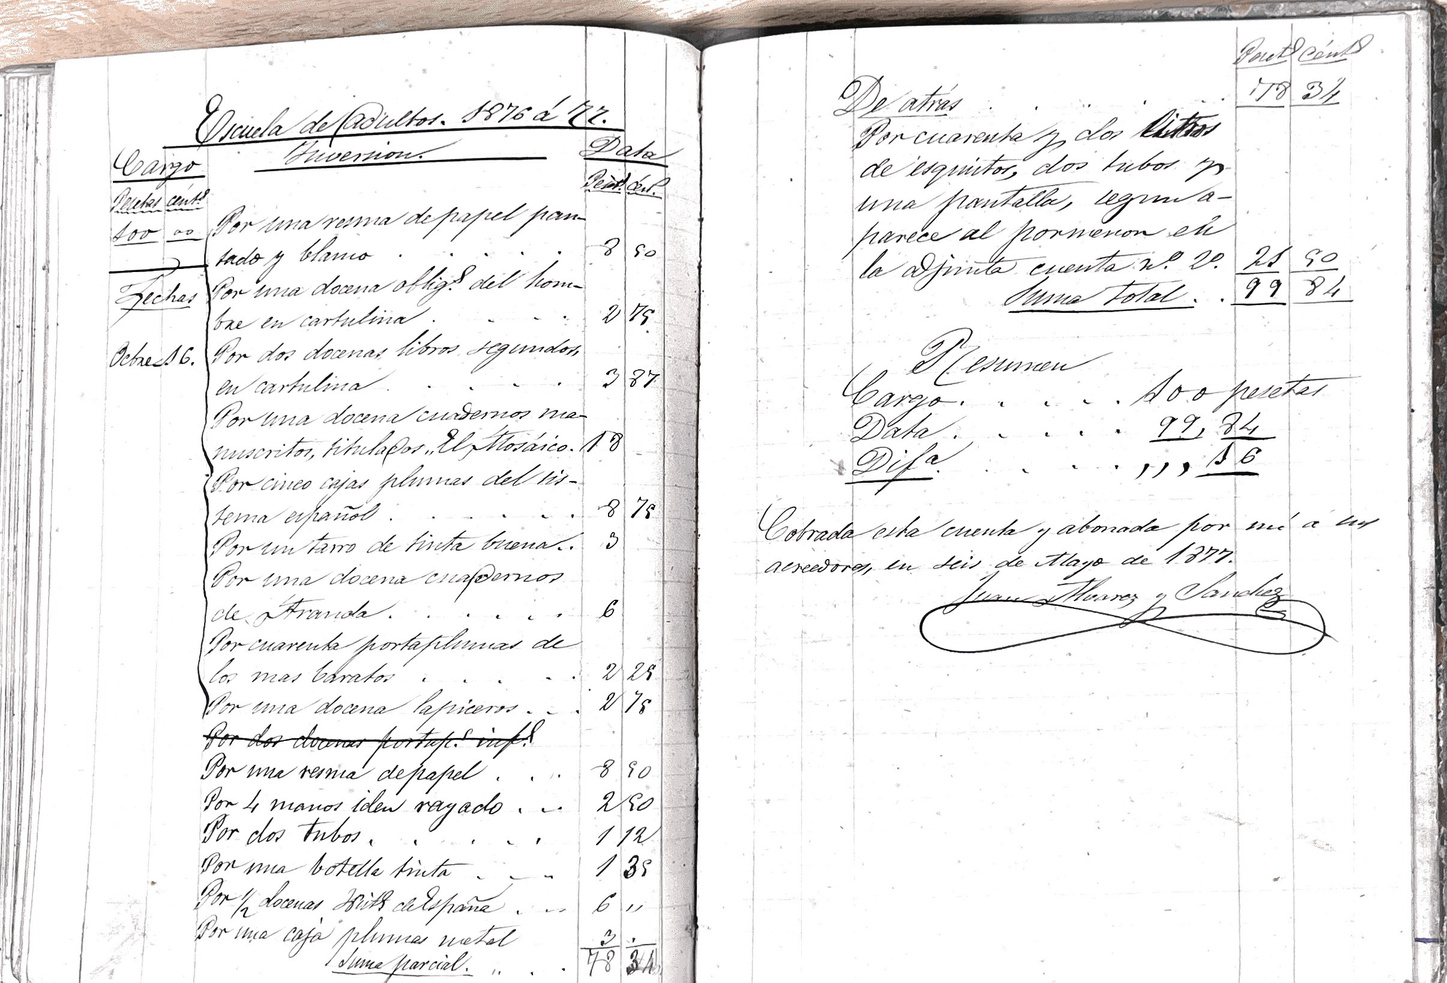 Escuela de Adultos. 1876 á 77.
Cargo
Inversion.
Data
Pesetas cént.s
Peset.s cént.s
100 00
Por una resma de papel pau-
tado y blanco . . . . . . 8 50
Fechas
Por una docena oblig.s del hom-
bre en cartulina . . . . 2 75
Octbre 16.
Por dos docenas libros segundos,
en cartulina . . . . . 3 87
Por una docena cuadernos ma-
nuscritos, titulados „El Mosáico. 18
Por cinco cajas plumas del sis-
tema español . . . . . . 8 75
Por un tarro de tinta buena. . 3
Por una docena cuadernos
de Aranda . . . . . . 6
Por cuarenta portaplumas de
los mas baratos . . . . . 2 25
Por una docena lapiceros . . . 2 75
Por dos docenas portap.s inf.s
Por una resma de papel . . . 8 50
Por 4 manos iden rayado . . . 2 50
Por dos tubos . . . . . . 1 12
Por una botella tinta . . . . 1 35
Por 1/2 docenas de España . . . 6 „
Por una caja plumas metal 3 .
Suma parcial. . . . 78 34
Peset.s cént.s
De atrás . . . . . 78 34
Por cuarenta y dos litros
de esquitos, dos tubos y
una pantalla, segun a-
parece al pormenor en
la adjunta cuenta nº. 2º. 21 50
Suma total . . 99 84
Resumen
Cargo . . . . . . 100 pesetas
Data . . . . . . 99, 84
Dif.a . . . . . . ,,, 16
Cobrada esta cuenta y abonada por mí á sus
acreedores, en seis de Mayo de 1877.
Juan Alvarez y Sanchez